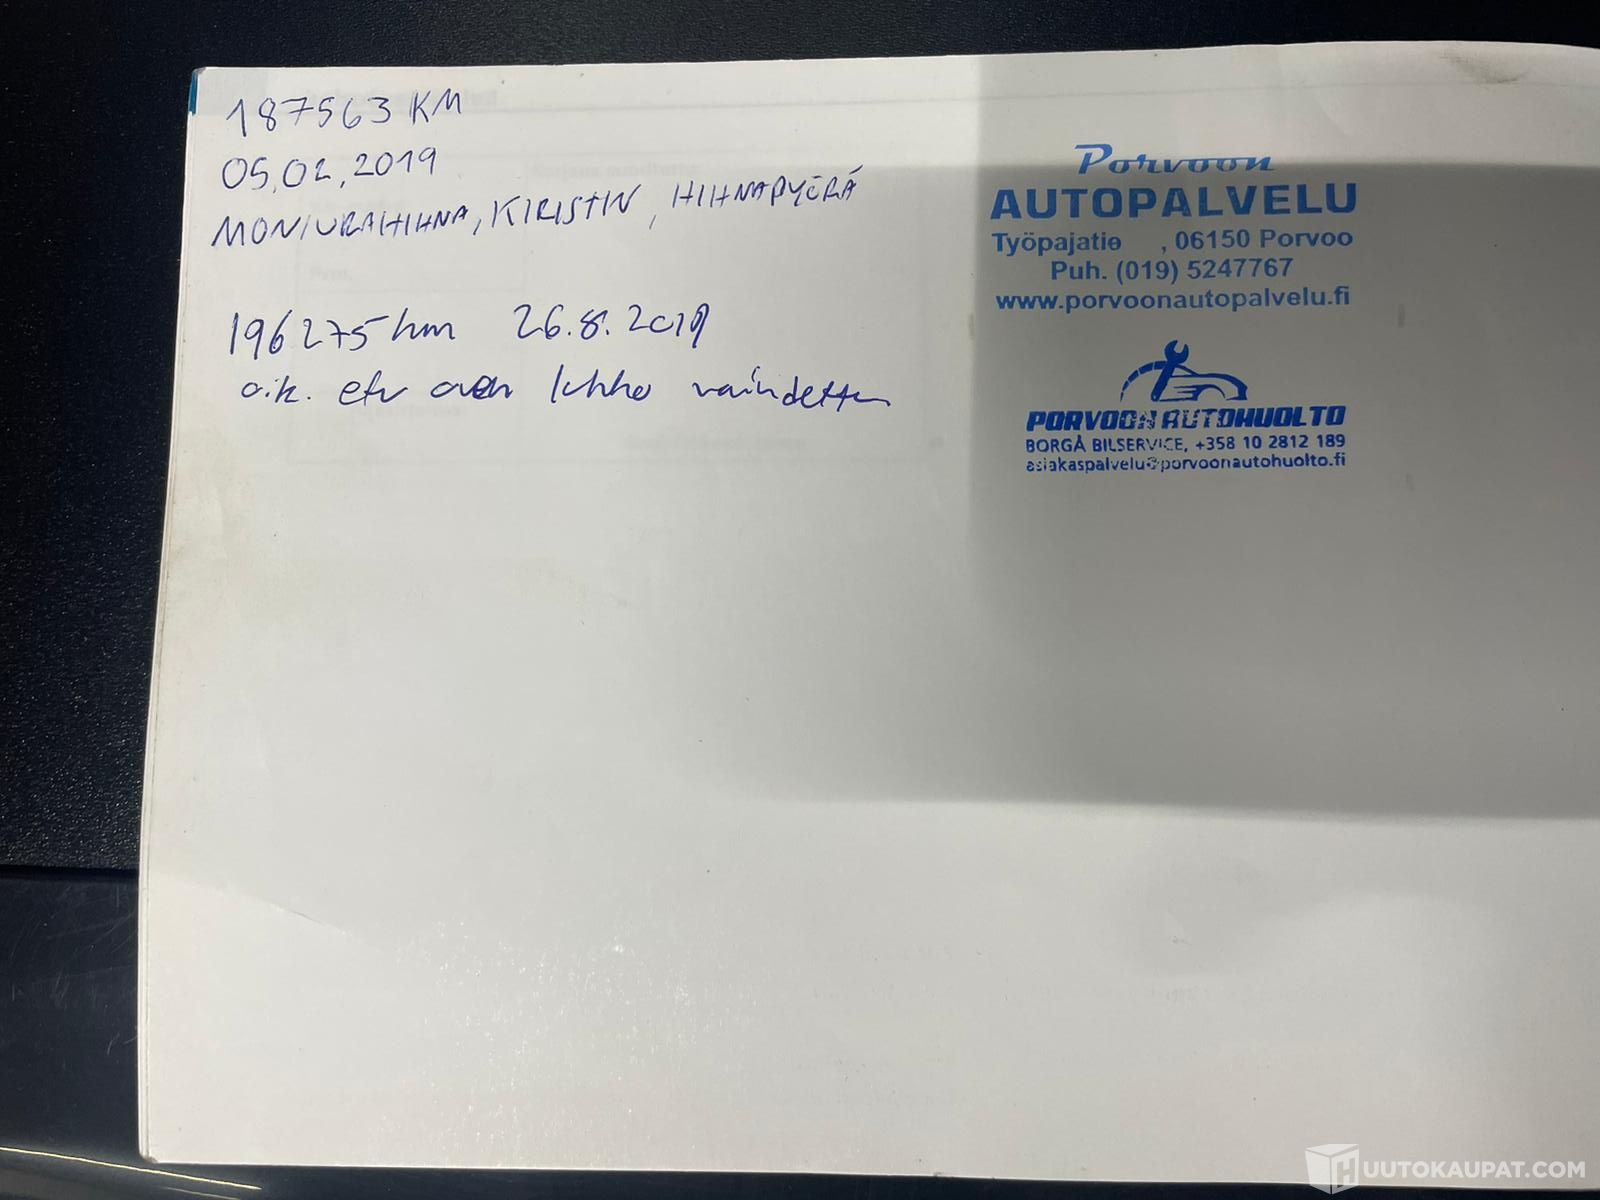 187563 KM
05.02.2019
MONIURAHIHNA, KIRISTIN, HIHNAPYÖRÄ
196275 km 26.8.2019
o.k. etu oven lukko vaihdettu
Porvoon
AUTOPALVELU
Työpajatie , 06150 Porvoo
Puh. (019) 5247767
www.porvoonautopalvelu.fi
PORVOON AUTOHUOLTO
BORGÅ BILSERVICE, +358 10 2812 189
asiakaspalvelu@porvoonautohuolto.fi
HUUTOKAUPAT.COM